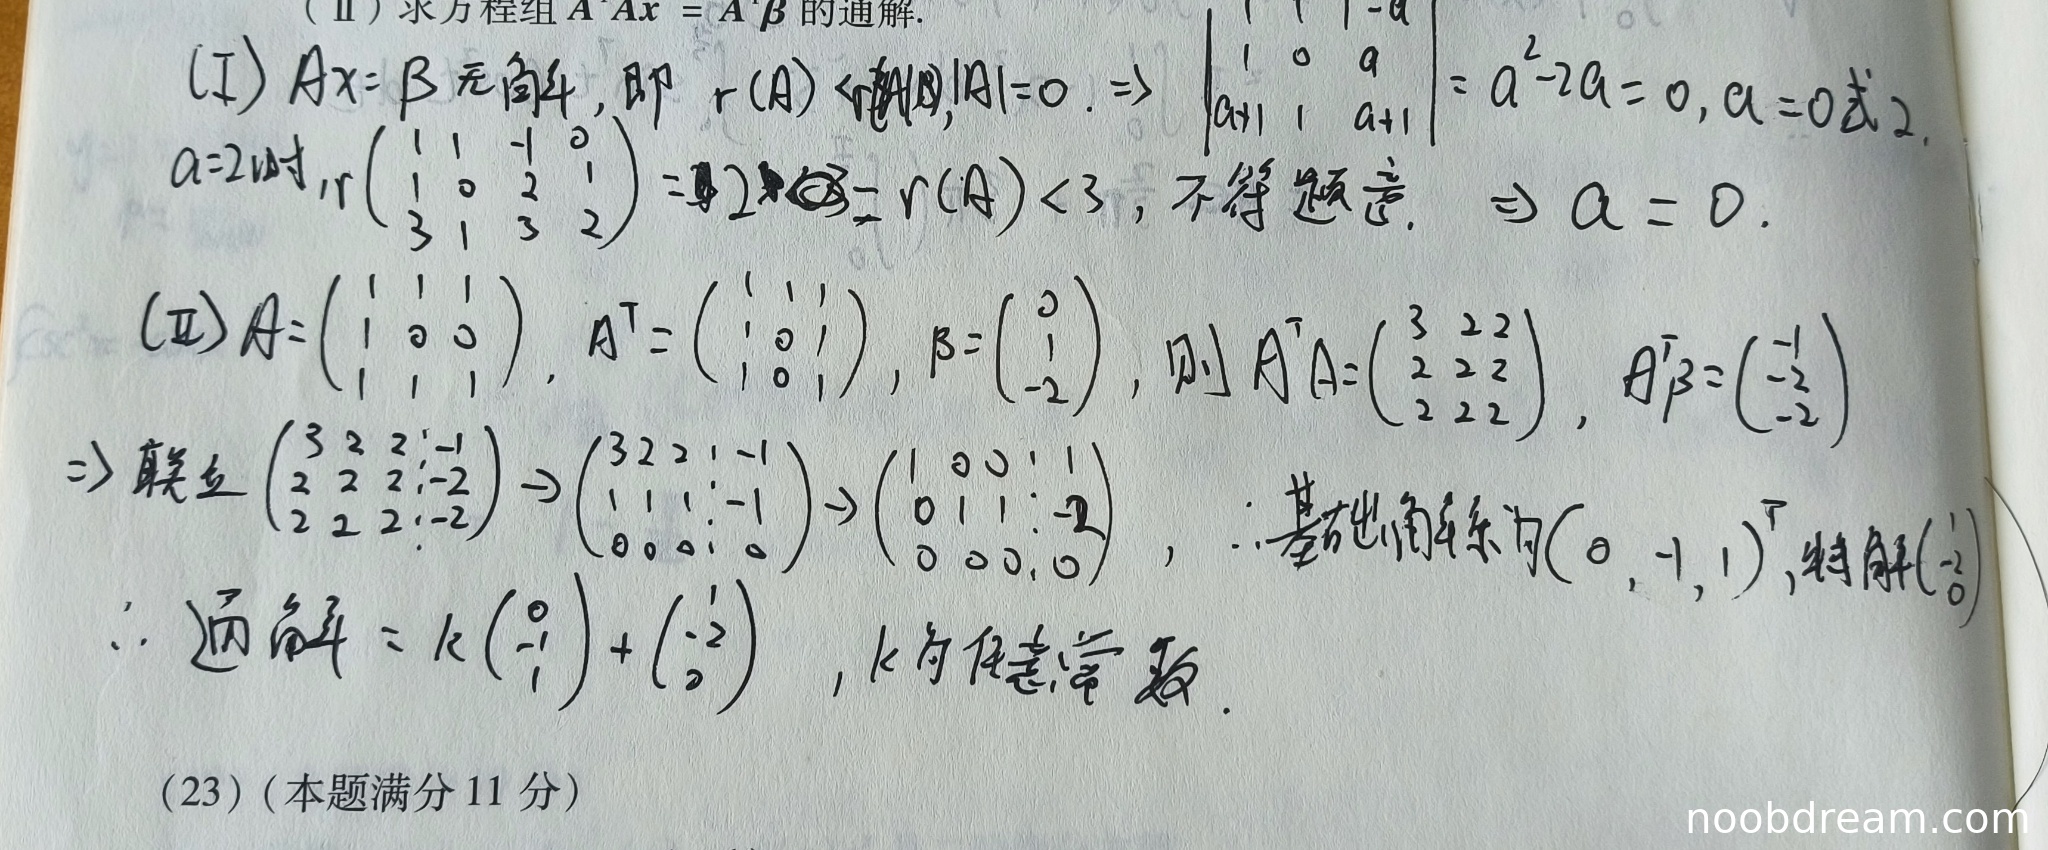 (Ⅱ) 求方程组 AᵀAx = Aᵀβ 的通解.
(I) Ax=β 无解, 即 r(A)< |A|=0. ⇒ | 1 1 1-a ; 1 0 a ; a+1 1 a+1 | = a²-2a=0, a=0或2.
a=2时, r( 1 1 -1 0 ; 1 0 2 1 ; 3 1 3 2 ) = 2 = r(A)<3, 不符题意. ⇒ a=0.
(Ⅱ) A=( 1 1 1 ; 1 0 0 ; 1 1 1 ), Aᵀ=( 1 1 1 ; 1 0 1 ; 1 0 1 ), β=( 0 ; 1 ; -2 ), 则 AᵀA=( 3 2 2 ; 2 2 2 ; 2 2 2 ), Aᵀβ=( -1 ; -2 ; -2 )
⇒ 联立 ( 3 2 2 ⋮ -1 ; 2 2 2 ⋮ -2 ; 2 2 2 ⋮ -2 ) → ( 3 2 2 ⋮ -1 ; 1 1 1 ⋮ -1 ; 0 0 0 ⋮ 0 ) → ( 1 0 0 ⋮ 1 ; 0 1 1 ⋮ -2 ; 0 0 0 ⋮ 0 ), ∴基础解系为(0, -1, 1)ᵀ, 特解( 1 ; -2 ; 0 )
∴ 通解 = k( 0 ; -1 ; 1 ) + ( 1 ; -2 ; 0 ), k为任意常数.
(23) (本题满分 11 分)
noobdream.com